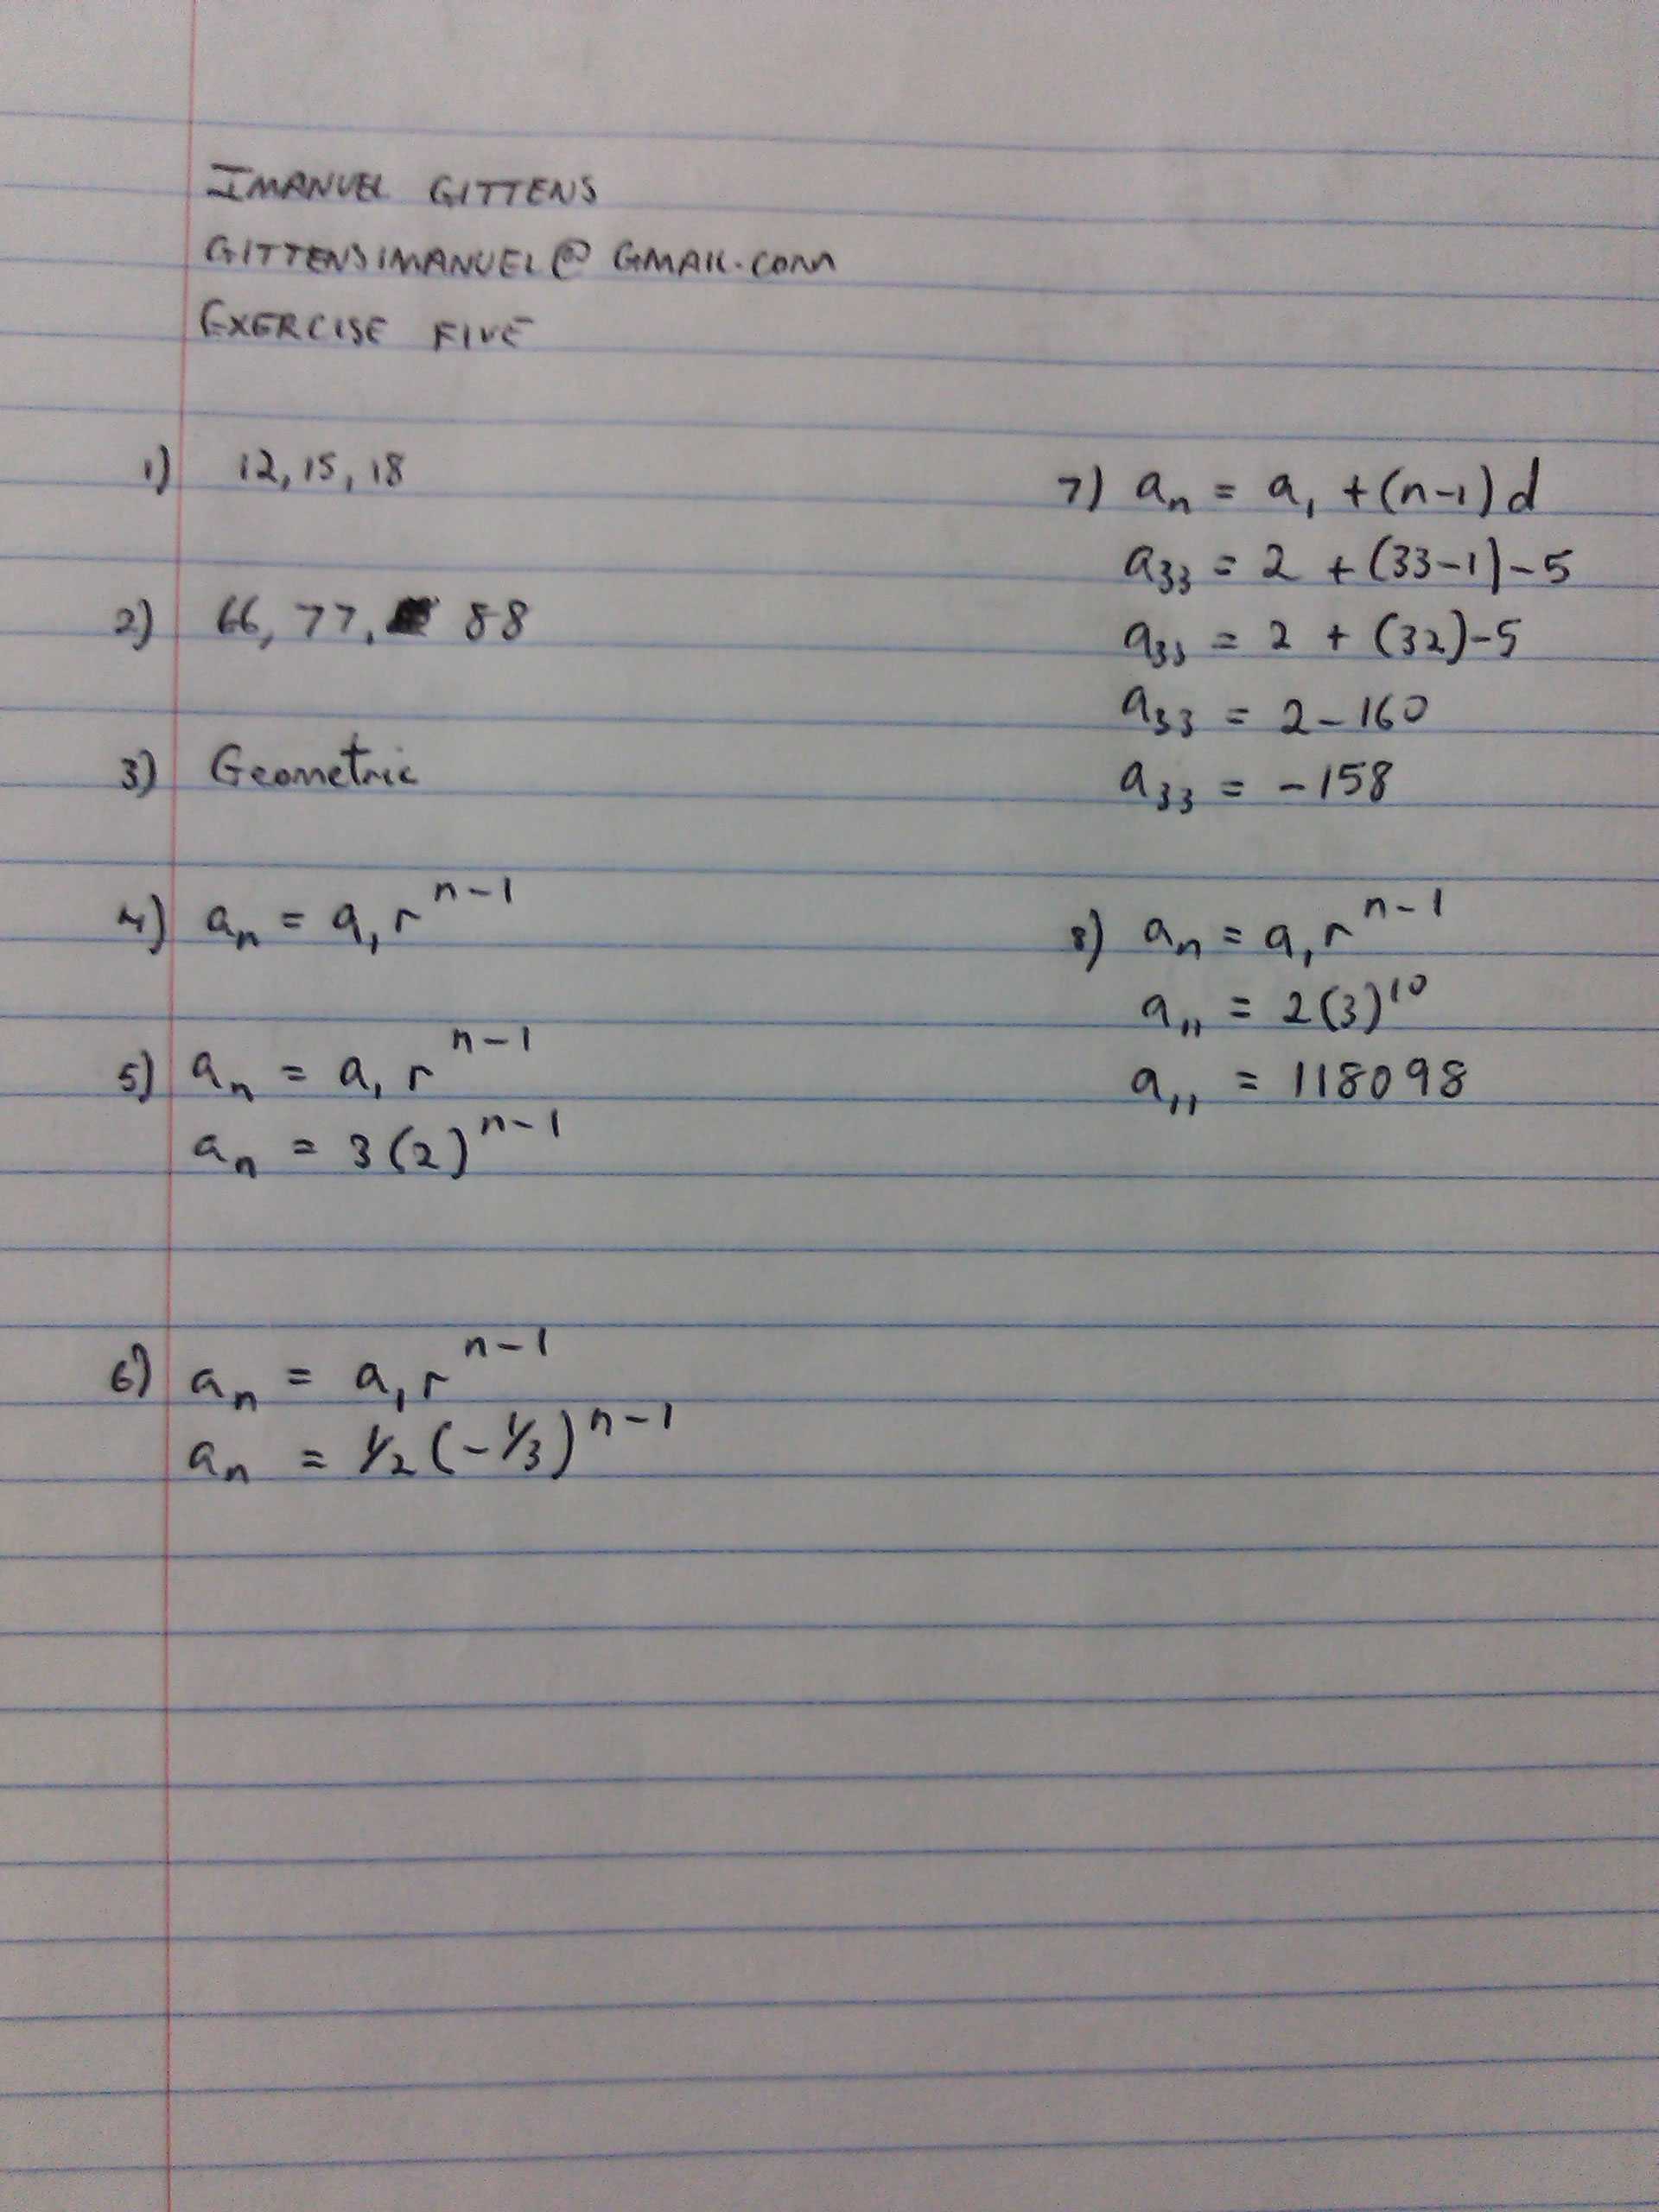 IMANUEL GITTENS
GITTENSIMANUEL@GMAIL.COM
EXERCISE FIVE
1) 12, 15, 18
2) 66, 77, 88
3) Geometric
4) aₙ = a₁rⁿ⁻¹
5) aₙ = a₁rⁿ⁻¹
aₙ = 3(2)ⁿ⁻¹
6) aₙ = a₁rⁿ⁻¹
aₙ = 1/2(-1/3)ⁿ⁻¹
7) aₙ = a₁ + (n-1)d
a₃₃ = 2 + (33-1)-5
a₃₃ = 2 + (32)-5
a₃₃ = 2-160
a₃₃ = -158
8) aₙ = a₁rⁿ⁻¹
a₁₁ = 2(3)¹⁰
a₁₁ = 118098